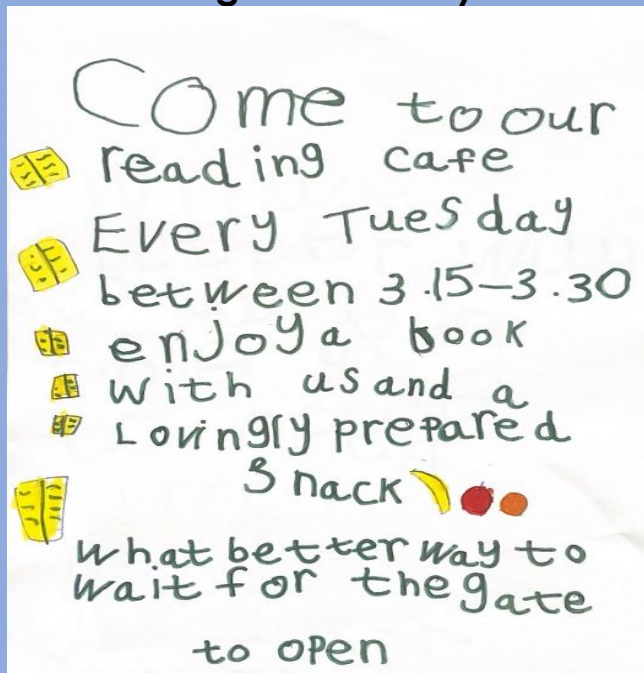 Come to our
reading cafe
Every Tuesday
between 3.15-3.30
enjoy a book
with us and a
Lovingly prepared
Snack
what better way to
wait for the gate
to open